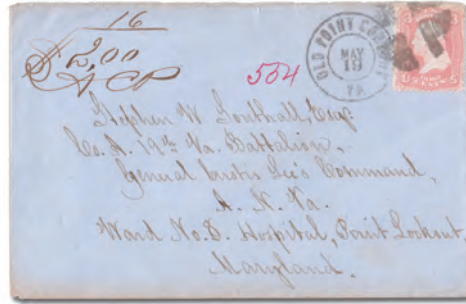 16
$2,00
564
OLD POINT COMFORT
MAY
19
VA.
3 3
U S
Stephen W. Southall, Esqr.
Co. A. 19th Va. Battalion,
General Custis Lee's Command,
A. N. Va.
Ward No. 8. Hospital, Point Lookout,
Maryland.